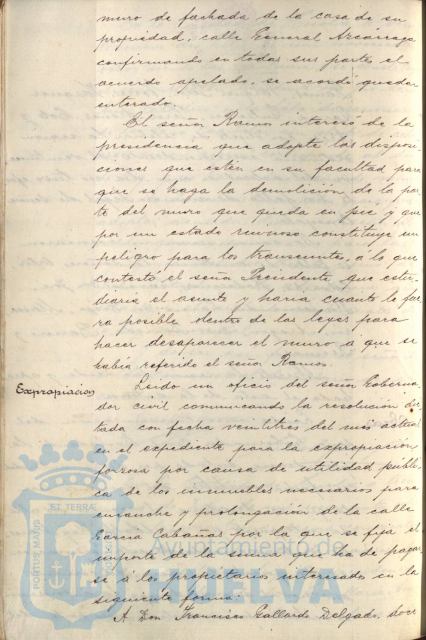 muro de fachada de la casa de su
propiedad, calle General Azcárraga
confirmando en todas sus partes el
acuerdo apelado, se acordó quedar
enterado.
El señor Ramos interesó de la
presidencia que adopte las disposi-
ciones que estén en su facultad para
que se haga la demolición de la par-
te del muro que queda en pie y que
por su estado ruinoso constituye un
peligro para los transeuntes, a lo que
contestó el señor Presidente que estu-
diaria el asunto y haria cuanto le fue-
ra posible dentro de las leyes para
hacer desaparecer el muro a que se
habia referido el señor Ramos.
Expropiacion
Leido un oficio del señor Goberna-
dor civil comunicando la resolución dic-
tada con fecha veintitres del mes actual
en el expediente para la expropiacion
forzosa por causa de utilidad públi-
ca de los inmuebles necesarios para
ensanche y prolongación de la calle
Garcia Cabañas por la que se fija el
importe de la suma que ha de pagar-
se á los propietarios interesados en la
siguiente forma:
A Don Francisco Gallardo Delgado, doce
PORTUS MARIS ET TERRAE
Ayuntamiento de
HUELVA